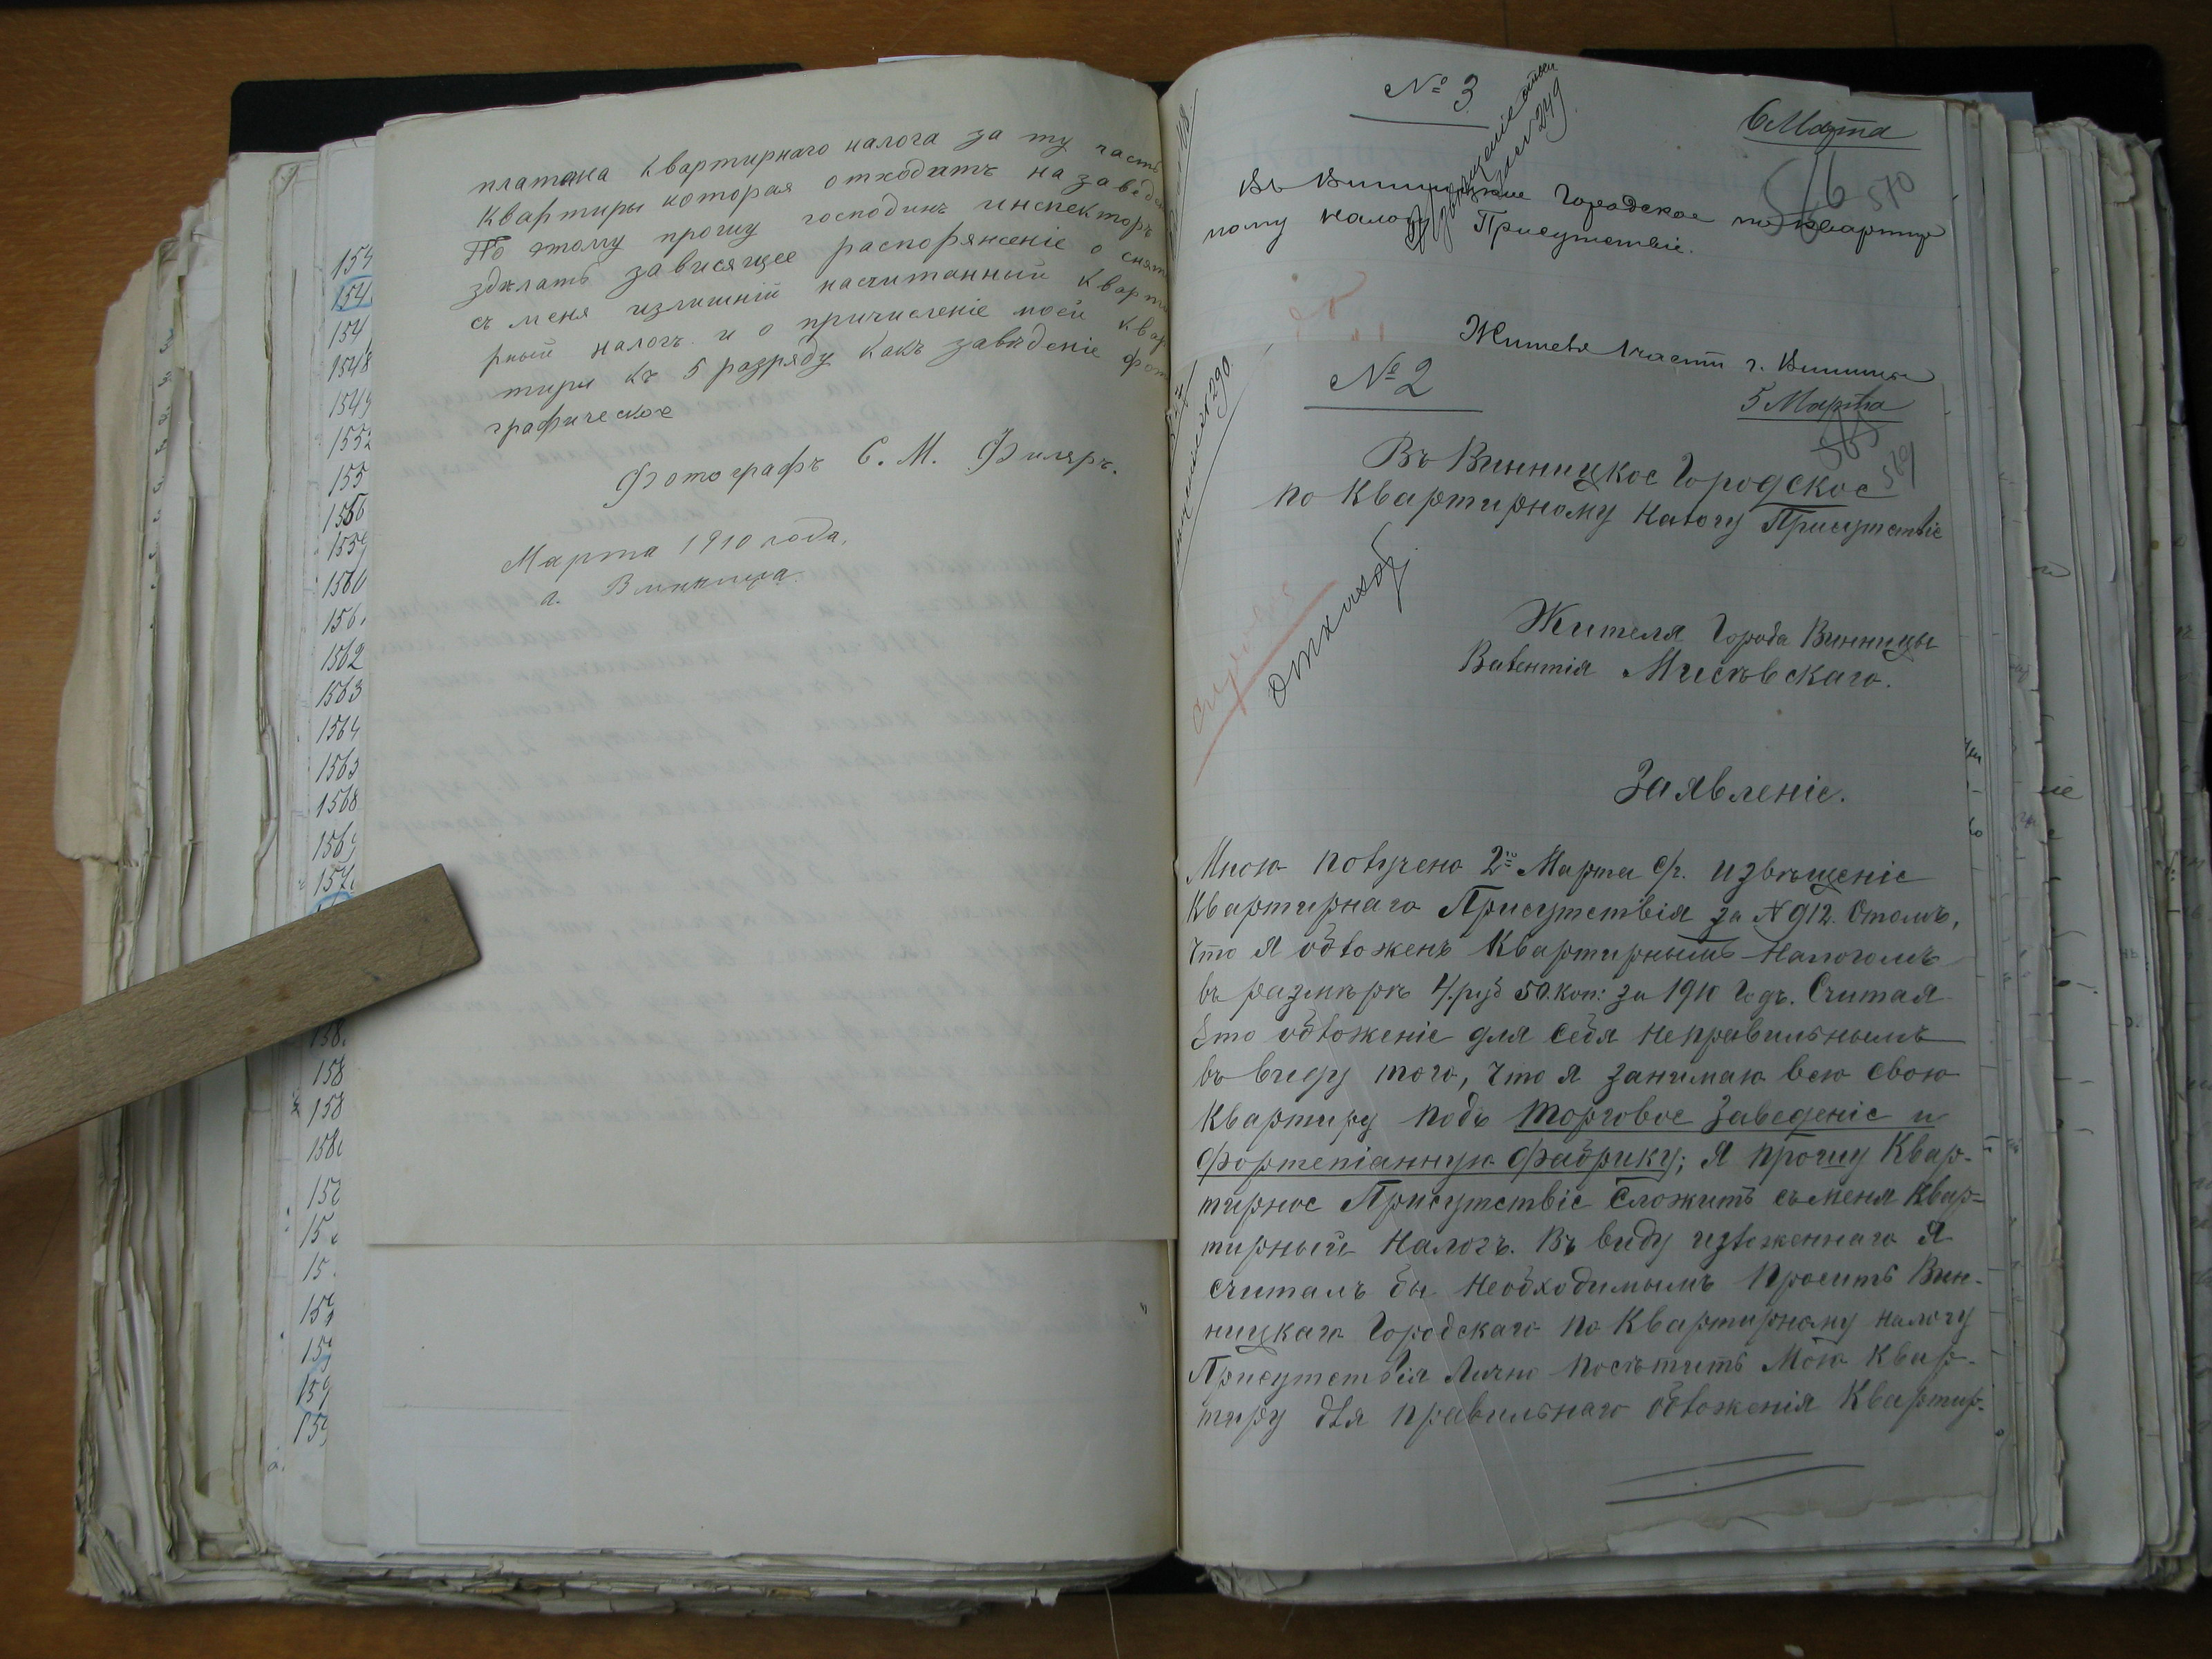 платана квартирнаго налога за ту часть
квартиры которая отходитъ на завед
По этому прошу господинъ инспекторъ
здѣлать зависящее распоряженіе о снят
съ меня излишній насчитанный кварти
рный налогъ и о причисленіе моей квар
тиры къ 5 разряду какъ завѣденіе фот
графическое
Фотографъ С. М. Филяръ.
Марта 1910 года,
г. Винница.
154
154
1548
1549
1552
155
1556
1559
1560
156
1562
1563
1564
1565
1568
156
157
158
158
158
158
15
15
15
15
15
159
15
№ 3
6 Марта
576 570
Въ Винницкое Городское по квартир
ному налогу Присутствіе.
Жителя 1 части г. Винницы
№ 2
5 Марта
569
Въ Винницкое Городское
по Квартирному Налогу Присутствіе
отказ
Жителя Города Винницы
Валентія
Заявленіе.
Мною получено 2го Марта с/г. извѣщеніе
Квартирнаго Присутствія за № 912. О томъ,
что я обложенъ Квартирнымъ Налогомъ
въ размѣрѣ 4. руб 50. коп: за 1910 Годъ. Считая
Это обложеніе для себя неправильнымъ
въ виду того, что я занимаю всю свою
Квартиру подъ торговое заведеніе и
фортепіанную фабрику; я прошу Квар-
тирное Присутствіе сложить съ меня квар=
тирный налогъ. Въ виду изложеннаго я
считалъ бы необходимымъ просить Вин-
ницкаго Городскаго по Квартирному налогу
Присутствія Лично посѣтить Мою Квар-
тиру для правильнаго обложенія Квартир-